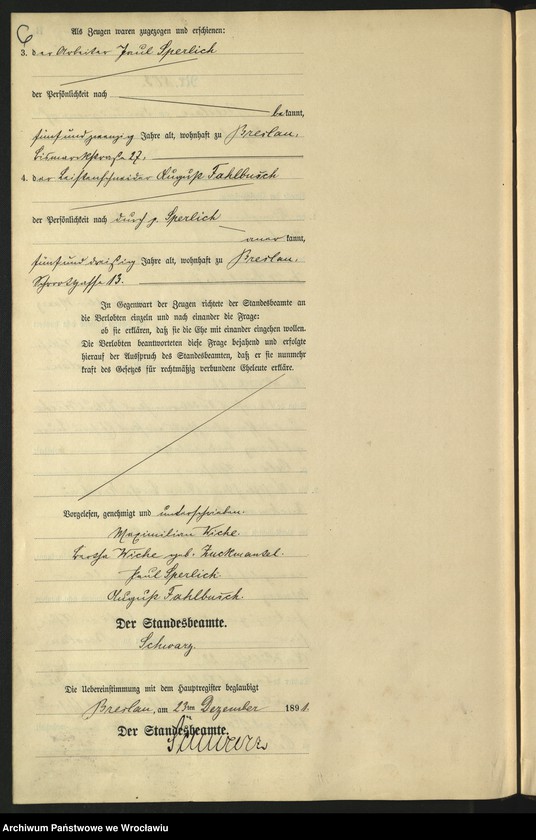 Als Zeugen waren zugezogen und erschienen:
3. der Arbeiter Paul Sperlich
der Persönlichkeit nach
bekannt,
fünfundzwanzig Jahre alt, wohnhaft zu Breslau,
Bismarckstraße 27.
4. der Leistenschneider August Fahlbusch
der Persönlichkeit nach durch p. Sperlich
anerkannt,
fünfunddreißig Jahre alt, wohnhaft zu Breslau,
Schrotgasse 13.
In Gegenwart der Zeugen richtete der Standesbeamte an
die Verlobten einzeln und nach einander die Frage:
ob sie erklären, daß sie die Ehe mit einander eingehen wollen.
Die Verlobten beantworteten diese Frage bejahend und erfolgte
hierauf der Ausspruch des Standesbeamten, daß er sie nunmehr
kraft des Gesetzes für rechtmäßig verbundene Eheleute erkläre.
Vorgelesen, genehmigt und unterschrieben.
Maximilian Wiche.
Bertha Wiche geb. Zuckmantel.
Paul Sperlich
August Fahlbusch.
Der Standesbeamte.
Schwarz.
Die Uebereinstimmung mit dem Hauptregister beglaubigt
Breslau, am 23ten Dezember 1891.
Der Standesbeamte.
Archiwum Państwowe we Wrocławiu